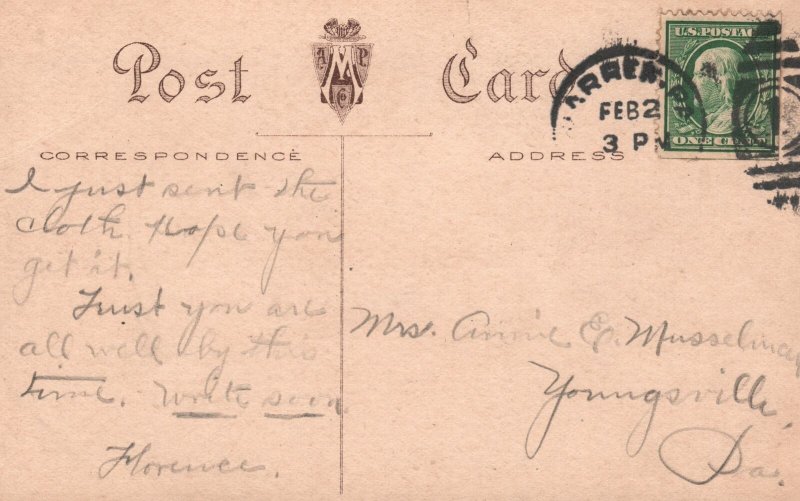 Post Card
A M P Co
U.S. POSTAGE
ONE CENT
WARREN, PA.
FEB 2
3 PM
CORRESPONDENCE
ADDRESS
I just sent the
cloth. Hope you
get it.
Trust you are
all well by this
time. Write soon
Florence.
Mrs. Annie E. Musselman
Youngsville,
Pa.